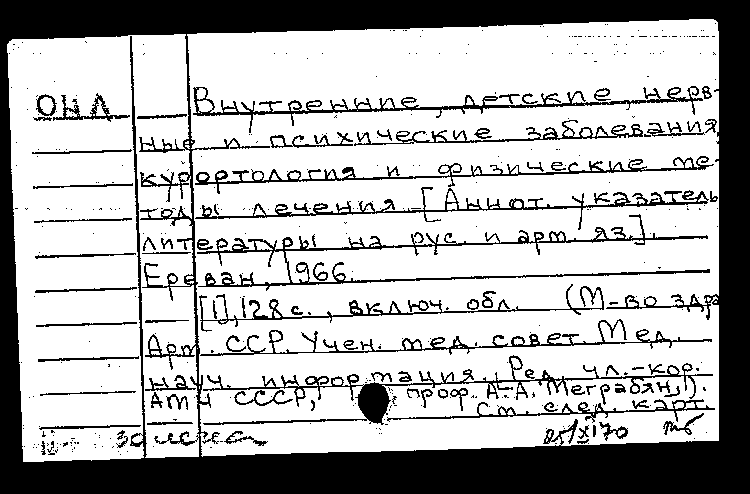 ОНЛ Внутренние, детские, нерв-
ные и психические заболевания,
курортология и физические ме-
тоды лечения [Аннот. указатель
литературы на рус. и арм. яз.].
Ереван, 1966.
[1], 128 с., включ. обл. (М-во здра
Арм. ССР. Учен. мед. совет. Мед.
науч. информация. Ред. чл.-кор.
АМН СССР, проф. А.А. Меграбян,).
См. след. карт.
25/XI 70